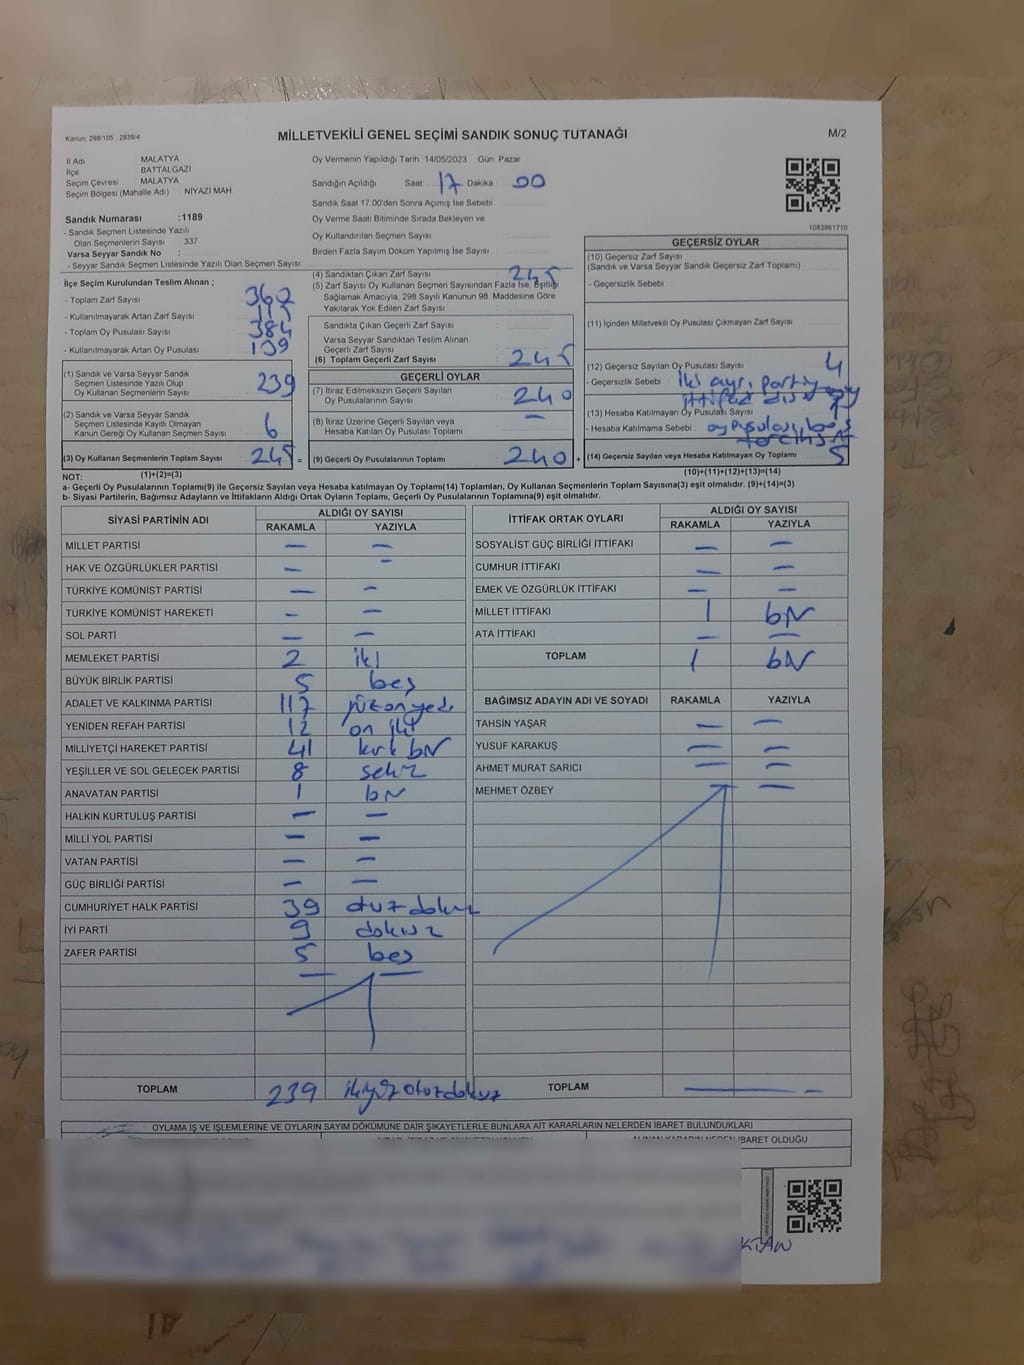 Kanun: 298/105 , 2839/4
MİLLETVEKİLİ GENEL SEÇİMİ SANDIK SONUÇ TUTANAĞI
M/2
İl Adı MALATYA
İlçe BATTALGAZİ
Seçim Çevresi MALATYA
Seçim Bölgesi (Mahalle Adı) NİYAZİ MAH
Sandık Numarası :1189
- Sandık Seçmen Listesinde Yazılı
Olan Seçmenlerin Sayısı : 337
Varsa Seyyar Sandık No :
- Seyyar Sandık Seçmen Listesinde Yazılı Olan Seçmen Sayısı :
Oy Vermenin Yapıldığı Tarih : 14/05/2023 Gün Pazar
Sandığın Açıldığı Saat : 17 Dakika : 00
Sandık Saat 17:00'den Sonra Açımış İse Sebebi :
Oy Verme Saati Bitiminde Sırada Bekleyen ve
Oy Kullandırılan Seçmen Sayısı :
Birden Fazla Sayım Döküm Yapılmış İse Sayısı :
1083881710
İlçe Seçim Kurulundan Teslim Alınan ;
- Toplam Zarf Sayısı : 360
- Kullanılmayarak Artan Zarf Sayısı : 115
- Toplam Oy Pusulası Sayısı : 384
- Kullanılmayarak Artan Oy Pusulası : 139
(1) Sandık ve Varsa Seyyar Sandık
Seçmen Listesinde Yazılı Olup
Oy Kullanan Seçmenlerin Sayısı 239
(2) Sandık ve Varsa Seyyar Sandık
Seçmen Listesinde Kayıtlı Olmayan
Kanun Gereği Oy Kullanan Seçmen Sayısı 6
(3) Oy Kullanan Seçmenlerin Toplam Sayısı 245 =
(4) Sandıktan Çıkan Zarf Sayısı : 245
(5) Zarf Sayısı Oy Kullanan Seçmen Sayısından Fazla İse, Eşitliği
Sağlamak Amacıyla, 298 Sayılı Kanunun 98. Maddesine Göre
Yakılarak Yok Edilen Zarf Sayısı :
Sandıkta Çıkan Geçerli Zarf Sayısı :
Varsa Seyyar Sandıktan Teslim Alınan
Geçerli Zarf Sayısı :
(6) Toplam Geçerli Zarf Sayısı : 245
GEÇERLİ OYLAR
(7) İtiraz Edilmeksizin Geçerli Sayılan
Oy Pusulalarının Sayısı : 240
(8) İtiraz Üzerine Geçerli Sayılan veya
Hesaba Katılan Oy Pusulası Toplamı : —
(9) Geçerli Oy Pusulalarının Toplamı 240 +
GEÇERSİZ OYLAR
(10) Geçersiz Zarf Sayısı
(Sandık ve Varsa Seyyar Sandık Geçersiz Zarf Toplamı) :
- Geçersizlik Sebebi :
(11) İçinden Milletvekili Oy Pusulası Çıkmayan Zarf Sayısı :
(12) Geçersiz Sayılan Oy Pusulası Sayısı : 4
- Geçersizlik Sebebi : iki ayrı partiye
ittifak dışı
(13) Hesaba Katılmayan Oy Pusulası Sayısı : 1
- Hesaba Katılmama Sebebi : oy pusulası boş
(14) Geçersiz Sayılan veya Hesaba Katılmayan Oy Toplamı 5
NOT: (1)+(2)=(3)
(10)+(11)+(12)+(13)=(14)
a- Geçerli Oy Pusulalarının Toplamı(9) ile Geçersiz Sayılan veya Hesaba katılmayan Oy Toplamı(14) Toplamları, Oy Kullanan Seçmenlerin Toplam Sayısına(3) eşit olmalıdır. (9)+(14)=(3)
b- Siyasi Partilerin, Bağımsız Adayların ve İttifakların Aldığı Ortak Oyların Toplamı, Geçerli Oy Pusulalarının Toplamına(9) eşit olmalıdır.
SİYASİ PARTİNİN ADI ALDIĞI OY SAYISI
RAKAMLA YAZIYLA
MİLLET PARTİSİ — —
HAK VE ÖZGÜRLÜKLER PARTİSİ — —
TÜRKİYE KOMÜNİST PARTİSİ — —
TÜRKİYE KOMÜNİST HAREKETİ — —
SOL PARTİ — —
MEMLEKET PARTİSİ 2 iki
BÜYÜK BİRLİK PARTİSİ 5 beş
ADALET VE KALKINMA PARTİSİ 117 yüzonyedi
YENİDEN REFAH PARTİSİ 12 on iki
MİLLİYETÇİ HAREKET PARTİSİ 41 kırk bir
YEŞİLLER VE SOL GELECEK PARTİSİ 8 sekiz
ANAVATAN PARTİSİ 1 bir
HALKIN KURTULUŞ PARTİSİ — —
MİLLİ YOL PARTİSİ — —
VATAN PARTİSİ — —
GÜÇ BİRLİĞİ PARTİSİ — —
CUMHURİYET HALK PARTİSİ 39 otuz dokuz
İYİ PARTİ 9 dokuz
ZAFER PARTİSİ 5 beş
TOPLAM 239 ikiyüz otuzdokuz
İTTİFAK ORTAK OYLARI ALDIĞI OY SAYISI
RAKAMLA YAZIYLA
SOSYALİST GÜÇ BİRLİĞİ İTTİFAKI — —
CUMHUR İTTİFAKI — —
EMEK VE ÖZGÜRLÜK İTTİFAKI — —
MİLLET İTTİFAKI 1 bir
ATA İTTİFAKI — —
TOPLAM 1 bir
BAĞIMSIZ ADAYIN ADI VE SOYADI RAKAMLA YAZIYLA
TAHSİN YAŞAR — —
YUSUF KARAKUŞ — —
AHMET MURAT SARICI — —
MEHMET ÖZBEY — —
TOPLAM — —
OYLAMA İŞ VE İŞLEMLERİNE VE OYLARIN SAYIM DÖKÜMÜNE DAİR ŞİKAYETLERLE BUNLARA AİT KARARLARIN NELERDEN İBARET BULUNDUKLARI
İBARET OLDUĞU